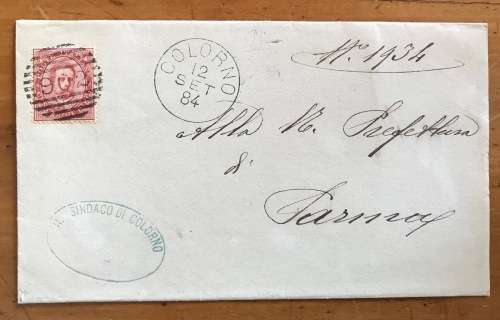 COLORNO
12
SET
84
N.o 1934
Alla R. Prefettura
di
Parma
IL SINDACO DI COLORNO